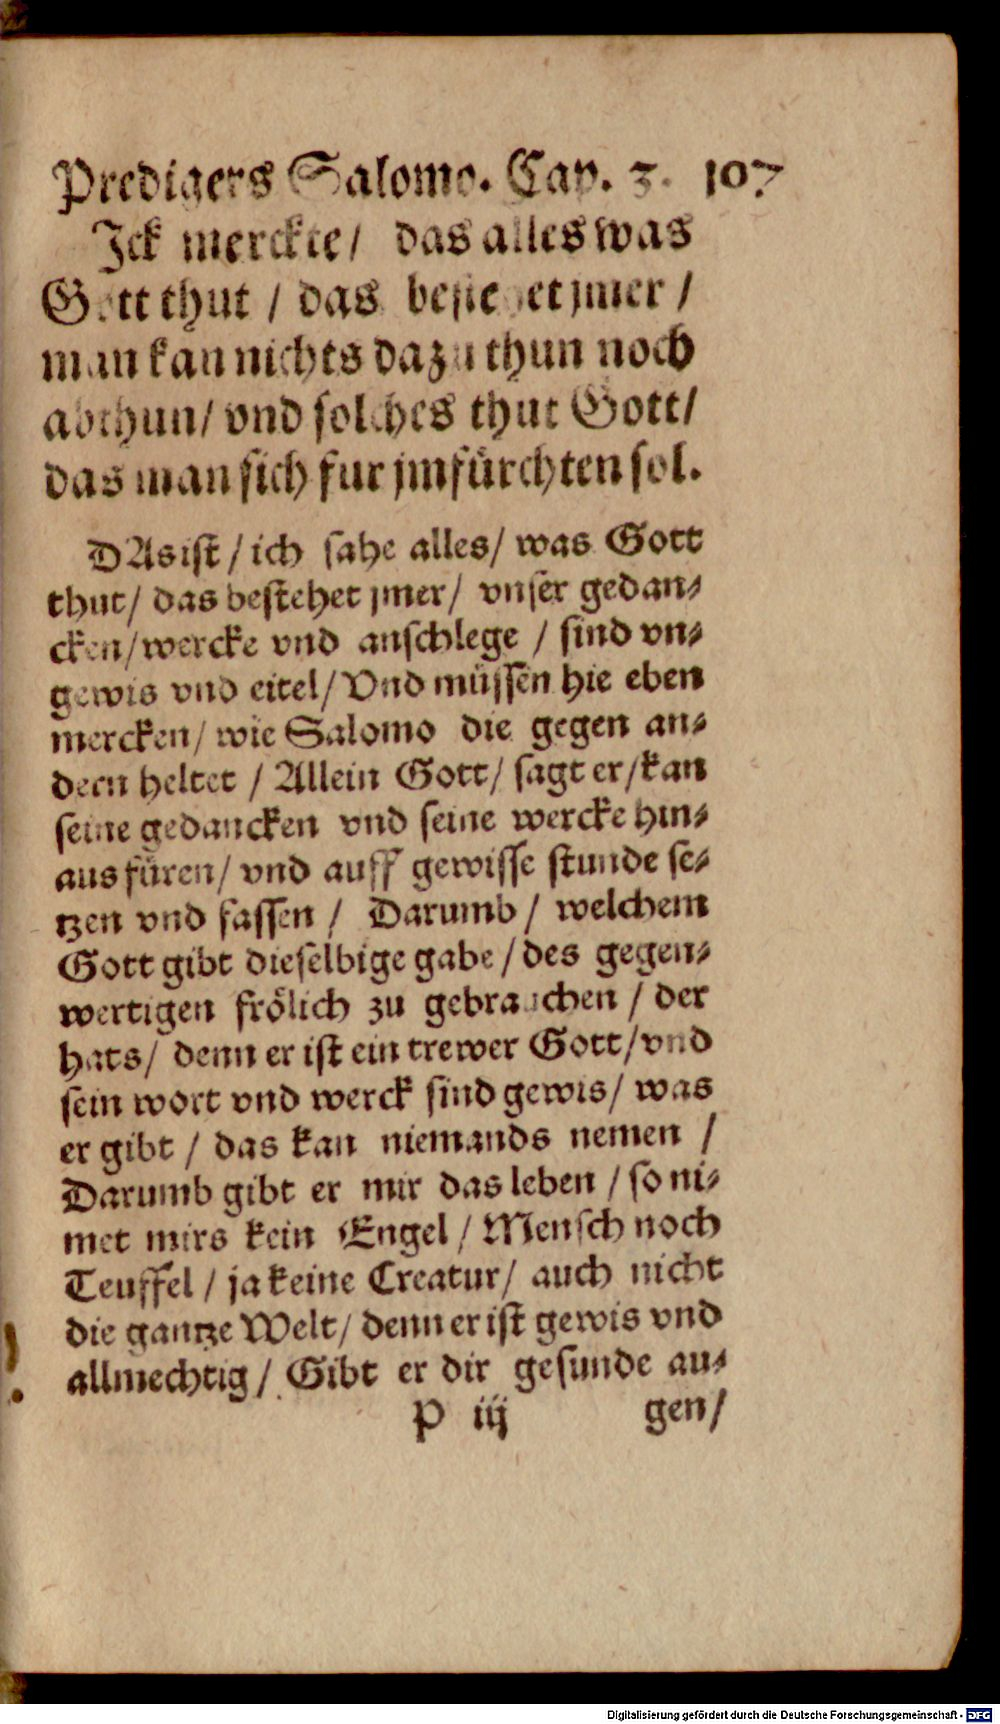 Predigers Salomo. Cap. 3. 107
Ick merckte / das alles was
Gott thut / das bestehet jmer /
man kan nichts dazu thun noch
abthun / vnd solches thut Gott /
das man sich fur jm fürchten sol.
DAs ist / ich sahe alles / was Gott
thut / das bestehet jmer / vnser gedan-
cken / wercke vnd anschlege / sind vn-
gewis vnd eitel / Vnd müssen hie eben
mercken / wie Salomo die gegen an-
dern heltet / Allein Gott / sagt er / kan
seine gedancken vnd seine wercke hin-
aus füren / vnd auff gewisse stunde se-
tzen vnd fassen / Darumb / welchem
Gott gibt dieselbige gabe / des gegen-
wertigen frölich zu gebrauchen / der
hats / denn er ist ein trewer Gott / vnd
sein wort vnd werck sind gewis / was
er gibt / das kan niemands nemen /
Darumb gibt er mir das leben / so ni-
met mirs kein Engel / Mensch noch
Teuffel / ja keine Creatur / auch nicht
die gantze Welt / denn er ist gewis vnd
allmechtig / Gibt er dir gesunde au-
P iij gen /
Digitalisierung gefördert durch die Deutsche Forschungsgemeinschaft - DFG